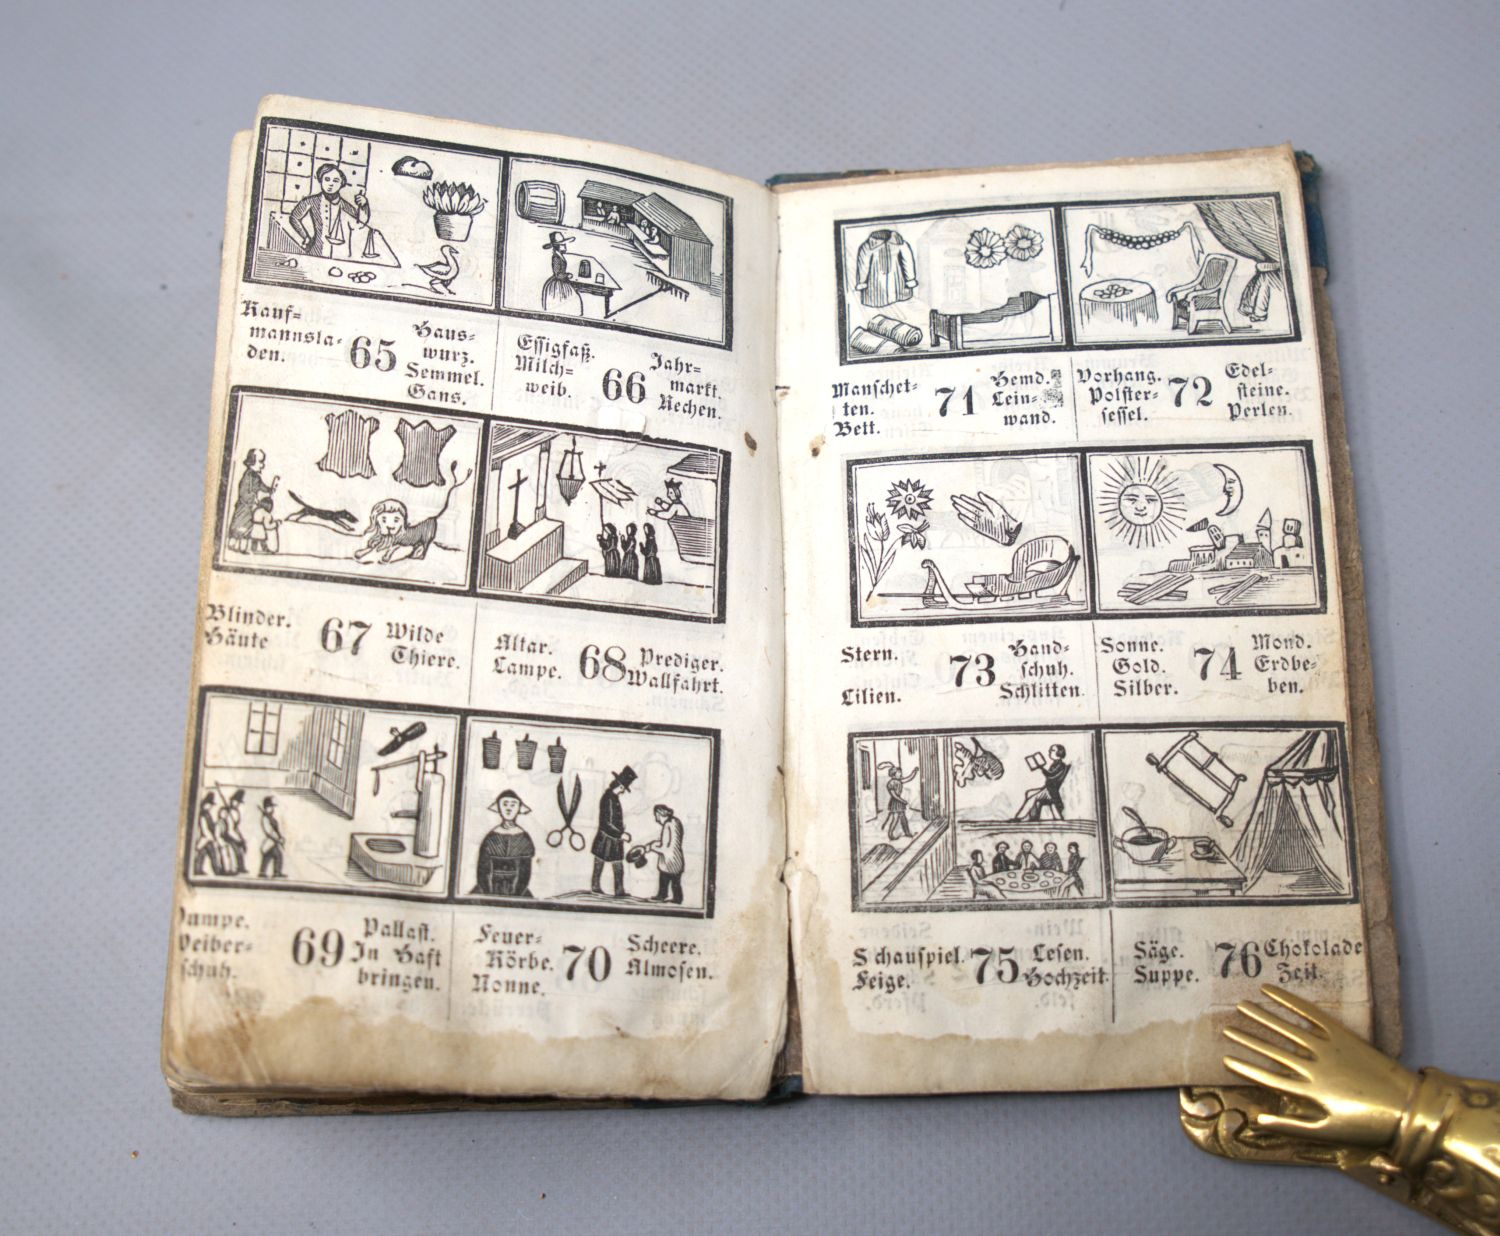 Kauf=
mannsla-
den.
65
Haus-
wurz.
Semmel.
Gans.
Essigfaß.
Milch=
weib.
66
Jahr=
markt.
Rechen.
Blinder.
Häute
67
Wilde
Thiere.
Altar.
Lampe.
68
Prediger.
Wallfahrt.
Weiber=
schuh.
69
Pallast.
In Haft
bringen.
Feuer=
Körbe.
Nonne.
70
Scheere.
Almosen.
Manschet-
ten.
Bett.
71
Hemd.
Lein-
wand.
Vorhang.
Polster-
sessel.
72
Edel-
steine.
Perlen.
Stern.
Lilien.
73
Hand=
schuh.
Schlitten.
Sonne.
Gold.
Silber.
74
Mond.
Erdbe-
ben.
Schauspiel.
Feige.
75
Lesen.
Hochzeit.
Säge.
Suppe.
76
Chokolade
Zelt.